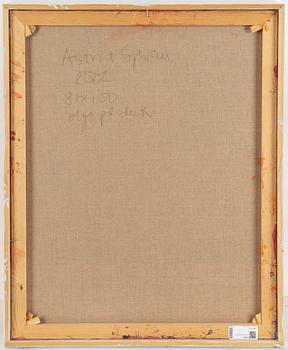 Astrid Sylwan
2002
81x100
olja på duk